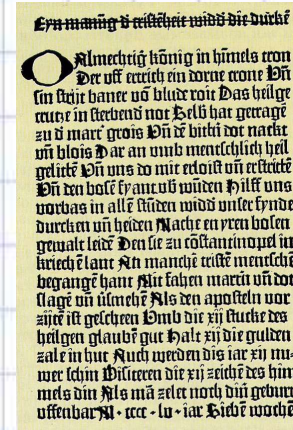 Eyn manūg d' cristēheit widd' die durkē
Almechtig könig in himels tron
Der uff ertrich ein dorne crone Vn̄
sin strijt baner vō blude roit Das heilge
crutze in sterbend not Selb hat getragē
zu d' mart' grois Vn̄ dē bittⁱ dot nackt
vn̄ blois Dar an vmb mentschlich heil
gelittē Vn̄ vns do mit erloist vn̄ erstrittē
Vn̄ den bosē fyant vb'wūden Hilff uns
vorbas in allē stūden widd' unser fynde
durcken vn̄ heiden Mache en yren bosen
gewalt leidē Den sie zu cōstantinopel in
kriech ē lant An manchē cristē mentschē
begangē hant Mit fahen martⁱn vn̄ dot
slagē vn̄ v'smehē Als den aposteln vor
zijtē ist gescheen Umb die xij stucke des
heilgen glaubē gut Halt xij die gulden
zale in hut Auch werden dis iar xij nu-
wer schin Visiteren die xij zeichē des him
mels din Als mā zelet noch din' geburt
offenbar M · cccc · lv · iar Siebē wochē